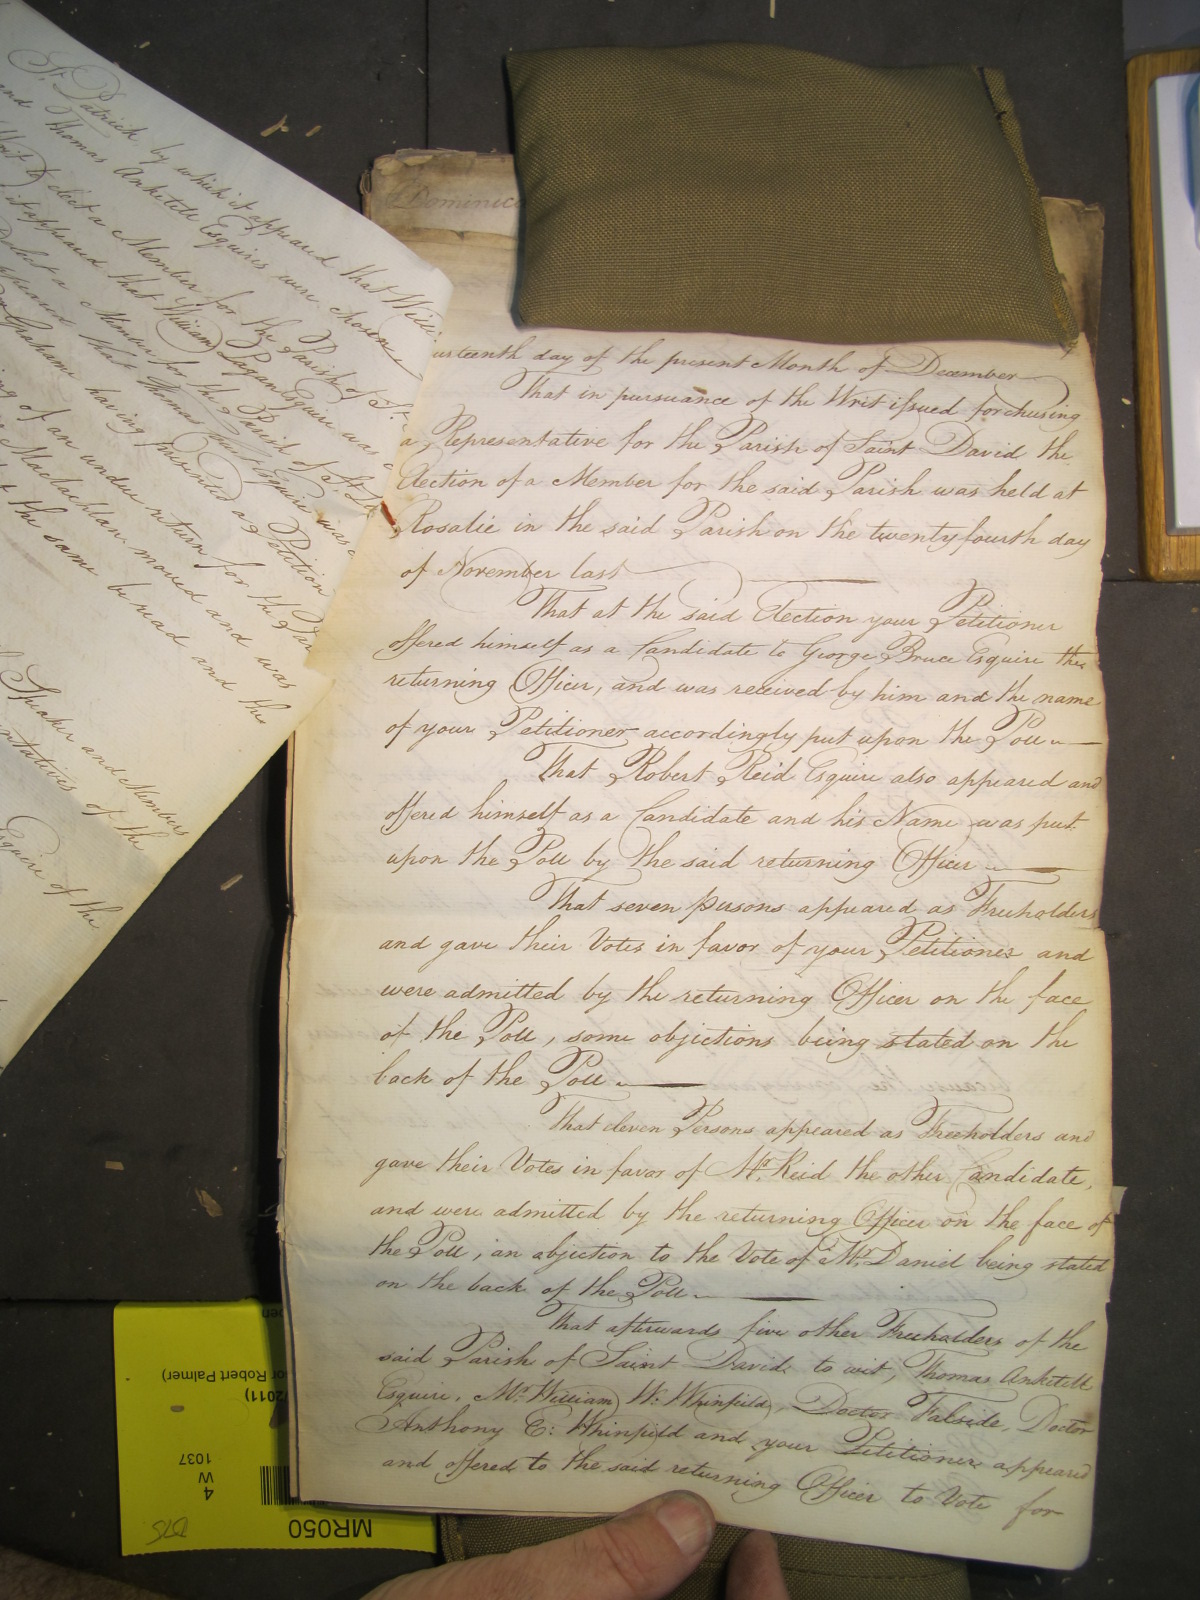 St. Patrick by which it appeared that Willi
and Thomas Anketell Esquires were chosen
Writ to elect a Member for the Parish of St.
it appeared that William Logan Esquire was
elect a Member for the Parish of St.
appeared that Thomas Esquire was
Graham having presented a Petition
of an undue return for the Par
Maclachlan moved and was
the same be read and the
Speaker and Members
ntatives of the
Esquire of the
Dominica
urteenth day of the present Month of December
That in pursuance of the Writ issued for chusing
a Representative for the Parish of Saint David the
Election of a Member for the said Parish was held at
Rosalie in the said Parish on the twenty fourth day
of November last
That at the said Election your Petitioner
offered himself as a Candidate to George Bruce Esquire the
returning Officer, and was received by him and the name
of your Petitioner accordingly put upon the Poll
That Robert Reid Esquire also appeared and
offered himself as a Candidate and his Name was put
upon the Poll by the said returning Officer
That seven persons appeared as Freeholders
and gave their Votes in favor of your Petitioner and
were admitted by the returning Officer on the face
of the Poll, some objections being stated on the
back of the Poll
That eleven Persons appeared as Freeholders and
gave their Votes in favor of Mr. Reid the other Candidate,
and were admitted by the returning Officer on the face of
the Poll, an objection to the Vote of Mr. Daniel being stated
on the back of the Poll
That afterwards five other Freeholders of the
said Parish of Saint David to wit, Thomas Anketell
Esquire, Mr. William W. Whinfield, Doctor Falside, Doctor
Anthony C: Whinfield and your Petitioner appeared
and offered to the said returning Officer to Vote for
or Robert Palmer)
2011)
1037
W
4
MR050